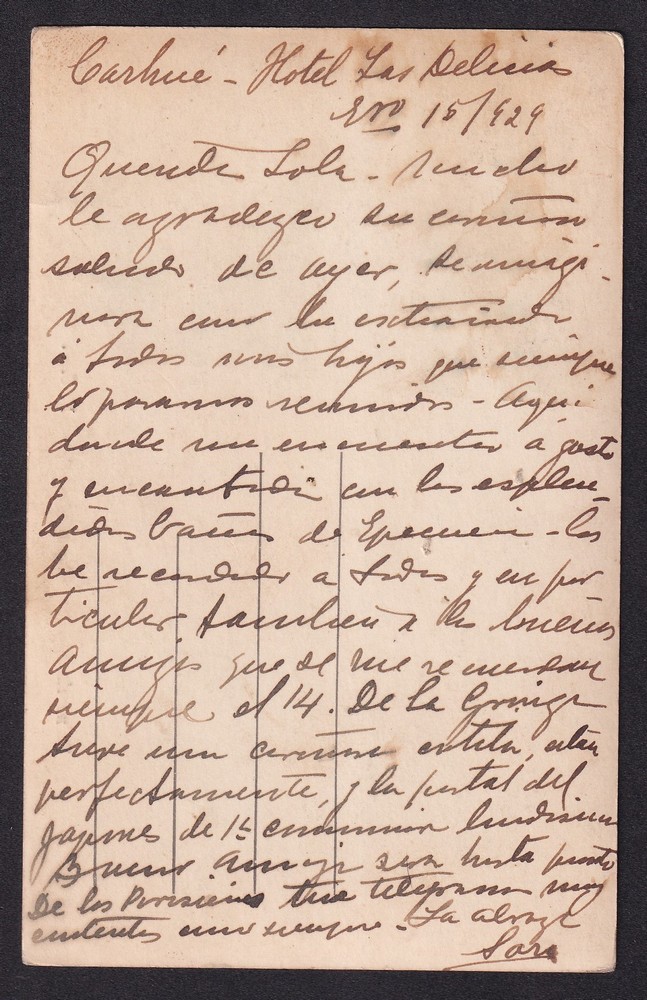 Carhué - Hotel Las Delicias
Ero 15/929
Querida Lola - Mucho
le agradezco su cariñoso
saludo de ayer, se imagi-
nara como he extrañado
á todos mis hijos que siempre
lo pasamos reunidos - Aqui
donde me encuentro á gusto
y encantada con los esplen-
didos baños de Epecuén - los
he recordado a todos y en par
ticular también á los buenos
amigos que se me recuerdan
siempre el 14. De la Gringa
tuve una cariñosa cartita, están
perfectamente, y la postal del
Japones de 1ª comunion lindisima
Bueno amiga sera hasta pronto
De los Parisienses tuve telegrama muy
contentos como siempre - La abraza
Sara